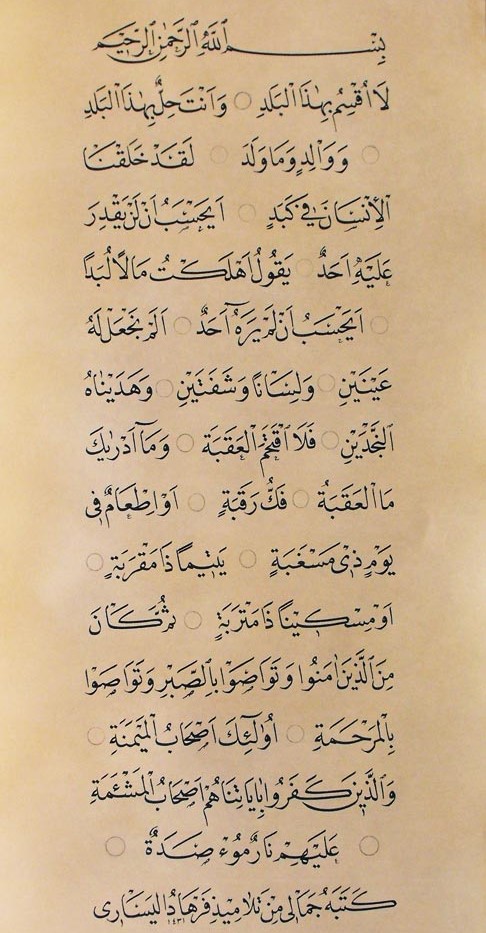 بِسْمِ اللّٰهِ الرَّحْمٰنِ الرَّحِيمِ
لَا اُقْسِمُ بِهٰذَا الْبَلَدِ ○ وَاَنْتَ حِلٌّ بِهٰذَا الْبَلَدِ
○ وَوَالِدٍ وَمَا وَلَدَ ○ لَقَدْ خَلَقْنَا
الْاِنْسَانَ فِي كَبَدٍ ○ اَيَحْسَبُ اَنْ لَنْ يَقْدِرَ
عَلَيْهِ اَحَدٌ ○ يَقُولُ اَهْلَكْتُ مَالًا لُبَدًا
○ اَيَحْسَبُ اَنْ لَمْ يَرَهُٓ اَحَدٌ ○ اَلَمْ نَجْعَلْ لَهُ
عَيْنَيْنِ ○ وَلِسَانًا وَشَفَتَيْنِ ○ وَهَدَيْنَاهُ
النَّجْدَيْنِ ○ فَلَا اقْتَحَمَ الْعَقَبَةَ ○ وَمَٓا اَدْرٰيكَ
مَا الْعَقَبَةُ ○ فَكُّ رَقَبَةٍ ○ اَوْ اِطْعَامٌ فِي
يَوْمٍ ذِي مَسْغَبَةٍ ○ يَتِيمًا ذَا مَقْرَبَةٍ ○
اَوْ مِسْكِينًا ذَا مَتْرَبَةٍ ○ ثُمَّ كَانَ
مِنَ الَّذِينَ اٰمَنُوا وَتَوَاصَوْا بِالصَّبْرِ وَتَوَاصَوْا
بِالْمَرْحَمَةِ ○ اُولٰٓئِكَ اَصْحَابُ الْمَيْمَنَةِ ○
وَالَّذِينَ كَفَرُوا بِاٰيَاتِنَا هُمْ اَصْحَابُ الْمَشْئَمَةِ
○ عَلَيْهِمْ نَارٌ مُوءْصَدَةٌ ○
كَتَبَهُ جَمَالِى مِنْ تَلَامِيذِ فَرْهَادُ الْيَسَارِى ١٤٣١